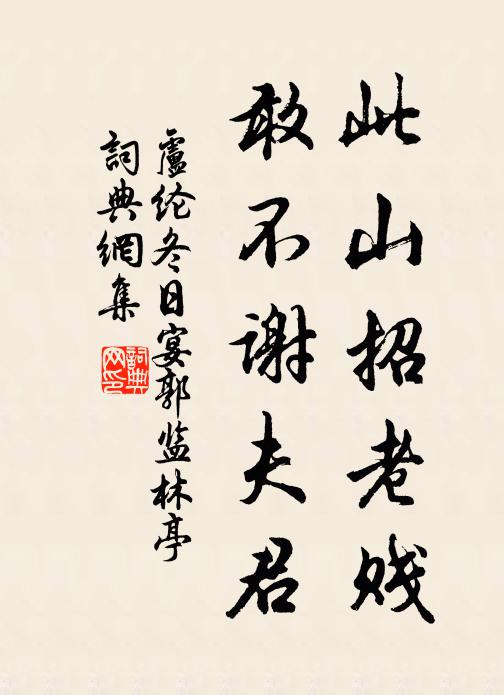 此山招老贱
敢不谢夫君
盧纶冬日宴郭监林亭
詞典網集
詞典网印